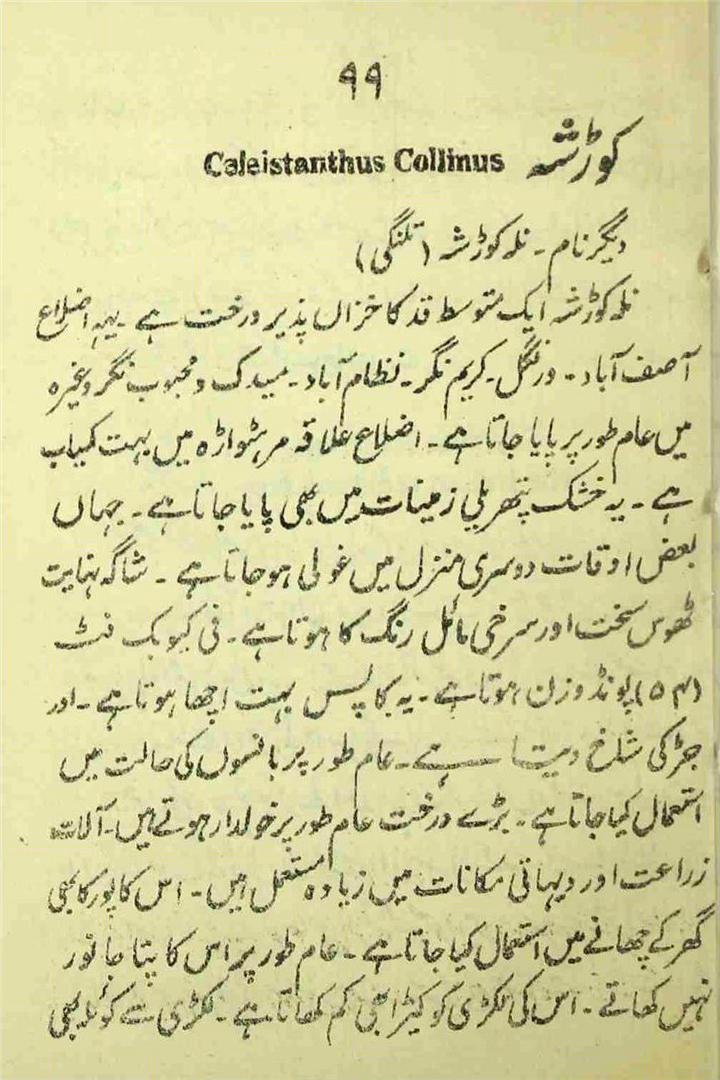 ۹۹
کوڑشہ Caleistanthus Collinus
دیگر نام ۔ نلہ کوڑشہ (تلنگی)
نلہ کوڑشہ ایک متوسط قد کا خزاں پذیر درخت ہے ۔ یہہ اضلاع
آصف آباد ۔ ورنگل ۔ کریم نگر ۔ نظام آباد ۔ میدک و محبوب نگر وغیرہ
میں عام طور پر پایا جاتا ہے ۔ اضلاع علاقہ مرہٹواڑہ میں بہت کمیاب
ہے ۔ یہ خشک پتھریلی زمینات میں بھی پایا جاتا ہے ۔ جہاں
بعض اوقات دوسری منزل میں غولی ہو جاتا ہے ۔ شاگہ نہایت
ٹھوس سخت اور سرخی مائل رنگ کا ہوتا ہے ۔ فی کیوبک فٹ
(۵۴) پونڈ وزن ہوتا ہے ۔ یہ کاپس بہت اچھا ہوتا ہے ۔ اور
جڑ کی شاخ دیتا ہے ۔ عام طور پر بانسوں کی حالت میں
استعمال کیا جاتا ہے ۔ بڑے درخت عام طور پر خولدار ہوتے ہیں ۔ آلات
زراعت اور دیہاتی مکانات میں زیادہ مستعمل ہیں ۔ اس کا پورکا بھی
گھر کے چھانے میں استعمال کیا جاتا ہے ۔ عام طور پر اس کا پتا جانور
نہیں کھاتے ۔ اس کی لکڑی کو کیڑا بھی کم کھاتا ہے ۔ لکڑی سے کوئلہ بھی